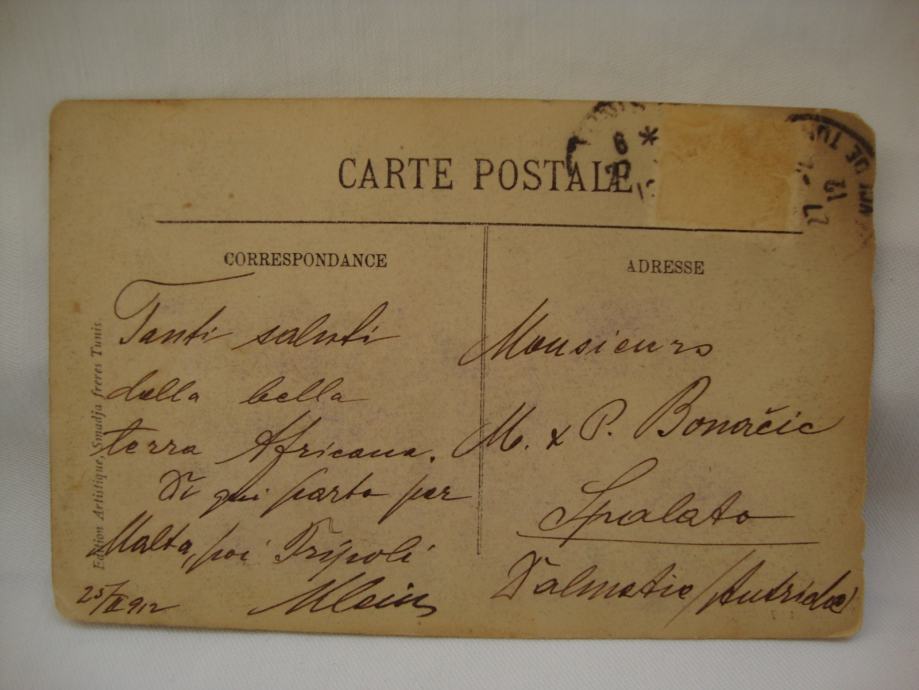 CARTE POSTALE
CORRESPONDANCE
ADRESSE
Edition Artistique, Smadja freres Tunis
Tanti saluti
della bella
terra Africana.
Di qui parto per
Malta, poi Tripoli
25/II 912
Monsieurs
M. & P. Bonačić
Spalato
Dalmatie